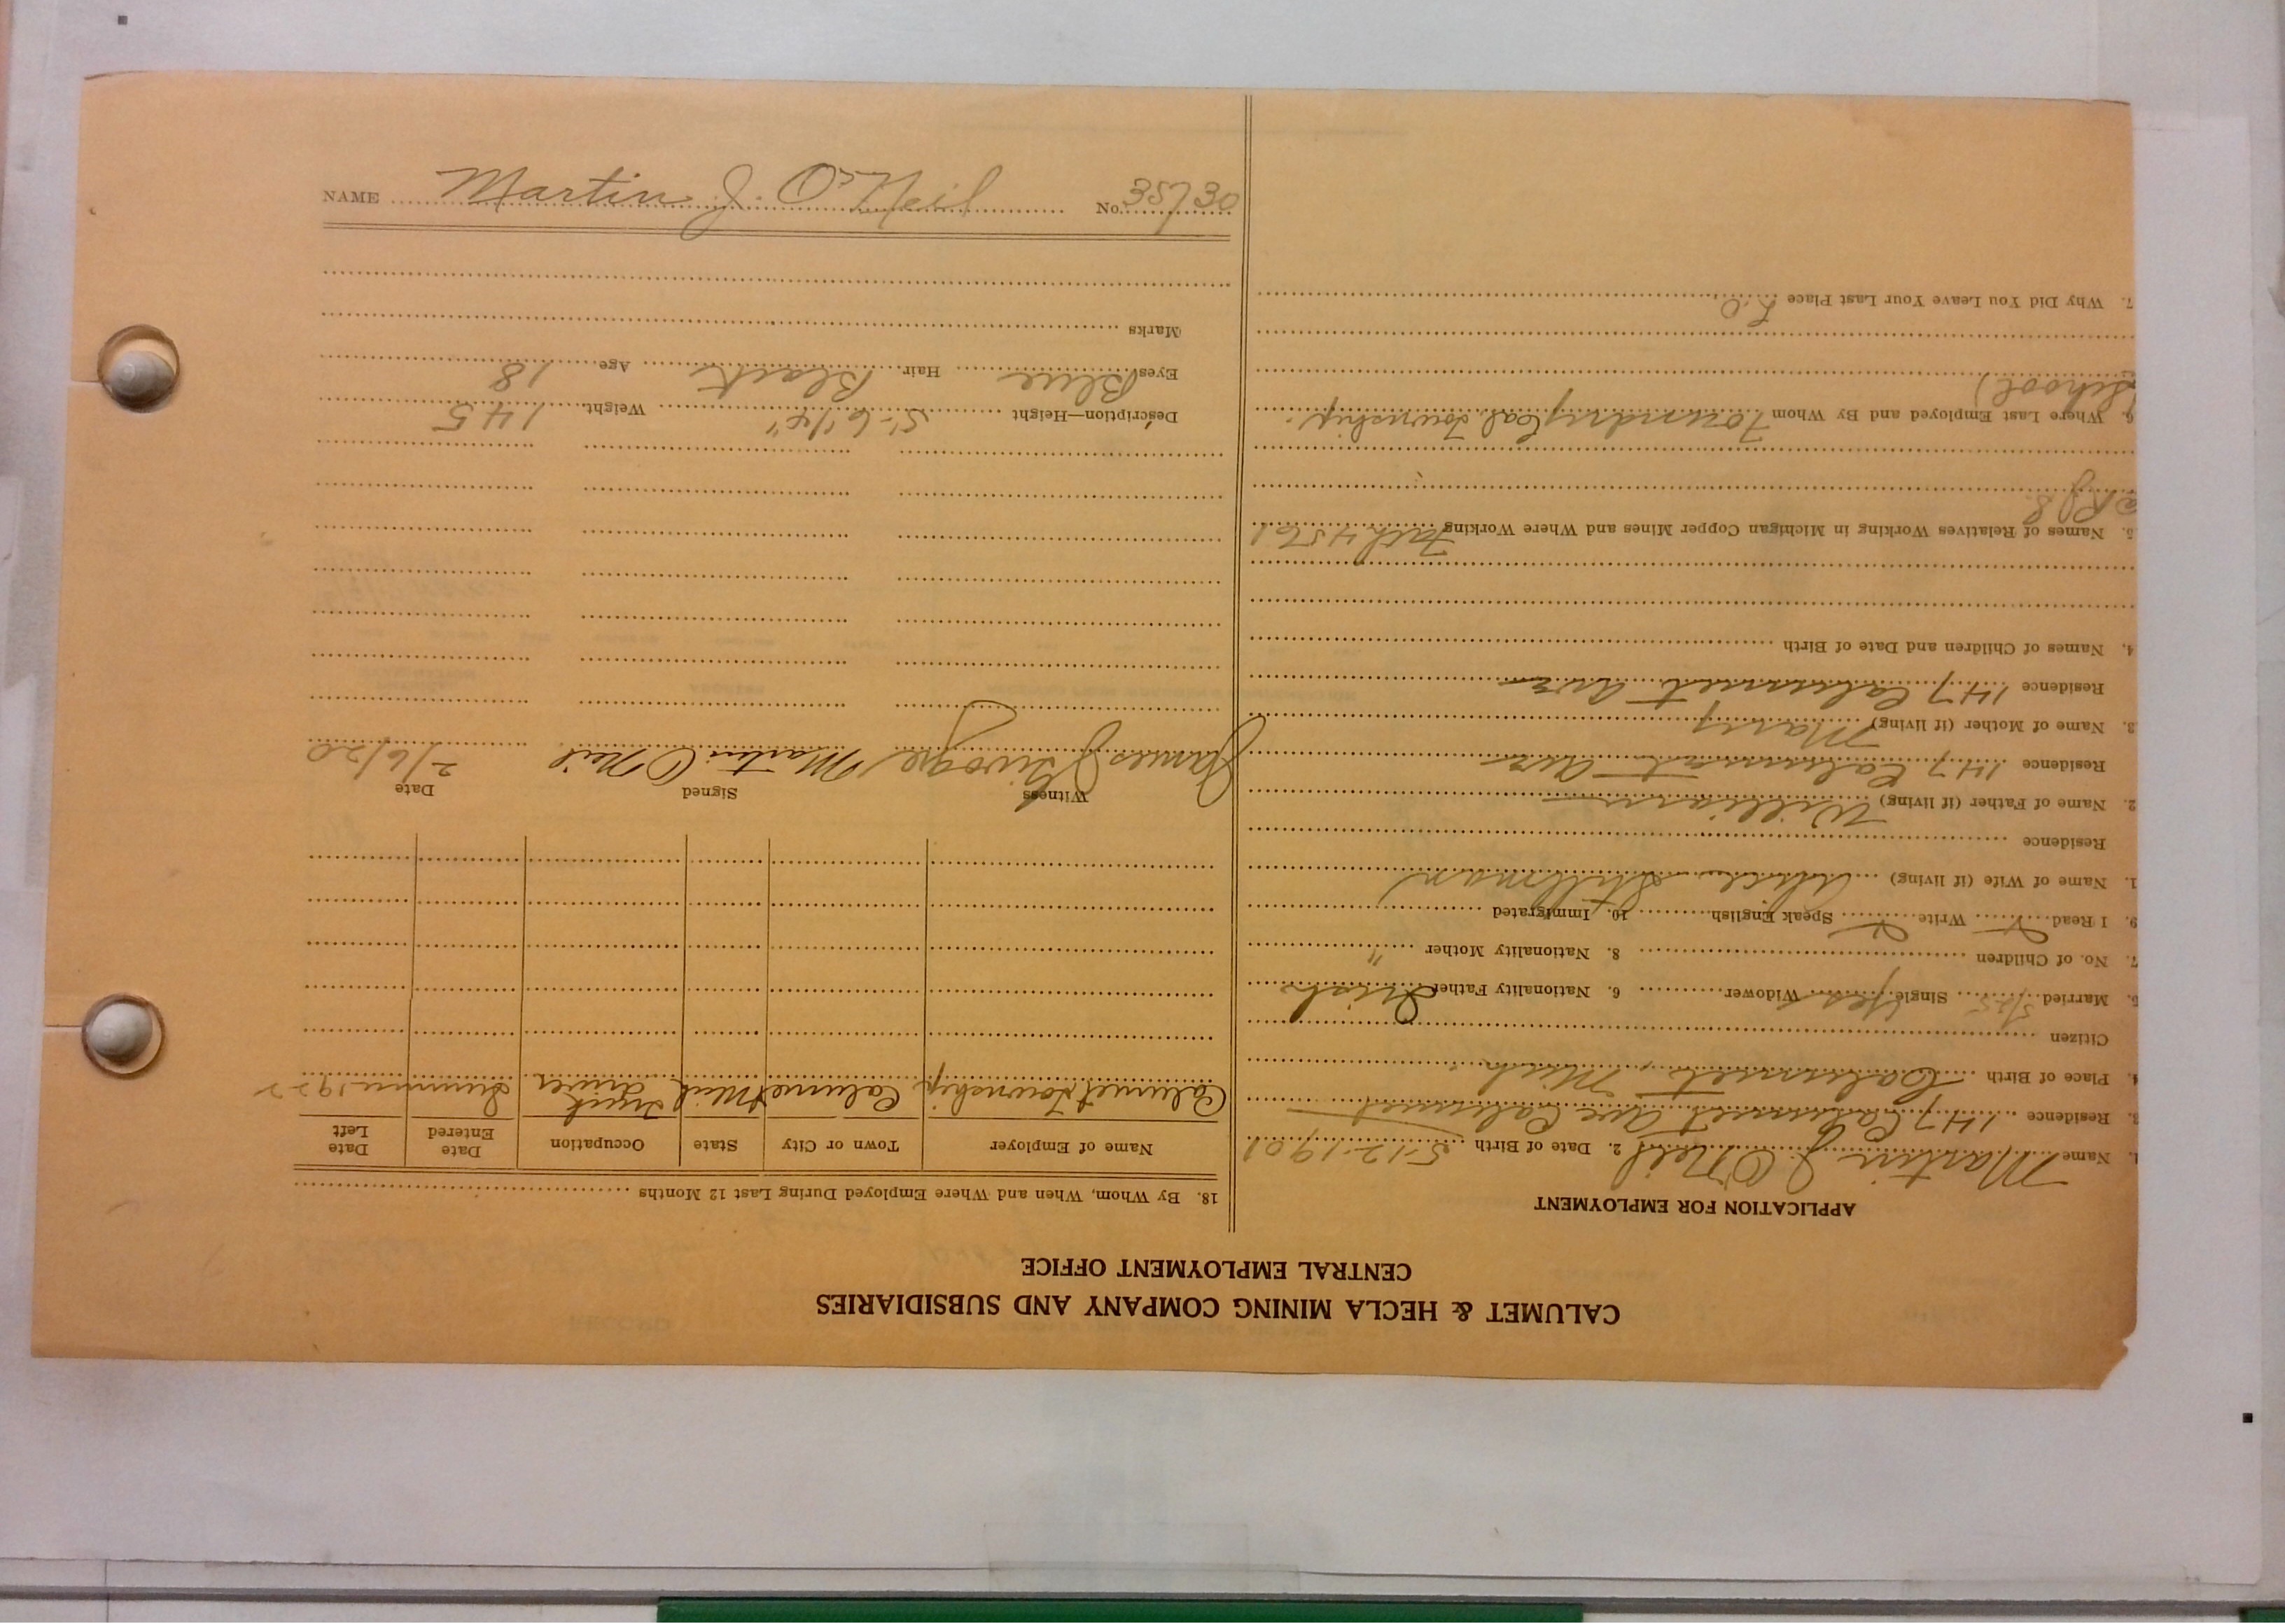 CALUMET & HECLA MINING COMPANY AND SUBSIDIARIES
CENTRAL EMPLOYMENT OFFICE
APPLICATION FOR EMPLOYMENT
1. Name Martin J. O'Neil 2. Date of Birth 5-12-1901
3. Residence 147 Calumet Ave Calumet
4. Place of Birth Calumet, Mich
Citizen
5. Married Single yes Widower 6. Nationality Father Irish
7. No. of Children 8. Nationality Mother "
9. I Read Write Speak English 10. Immigrated
1. Name of Wife (if living)
Residence
2. Name of Father (if living) William
Residence 147 Calumet Ave
3. Name of Mother (if living) Mary
Residence 147 Calumet Ave
4. Names of Children and Date of Birth
5. Names of Relatives Working in Michigan Copper Mines and Where Working
6. Where Last Employed and By Whom Foundry Cal. Township
(School)
7. Why Did You Leave Your Last Place
18. By Whom, When and Where Employed During Last 12 Months
Name of Employer Town or City State Occupation Date Entered Date Left
Calumet Township Calumet Mich Truck driver Summer 1922
Witness Signed Date
James Martin O'Neil 2/6/20
Description—Height 5'-6 1/4" Weight 145
Eyes Blue Hair Black Age 18
Marks
NAME Martin J. O'Neil No. 35730